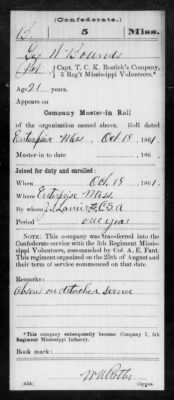 (Confederate.)
B. 5 Miss.
Geo W Bounds
Pvt, Capt. T. C. K. Bostick's Company,
5 Reg't Mississippi Volunteers.*
Age 21 years.
Appears on
Company Muster-in Roll
of the organization named above. Roll dated
Enterprise Miss, Oct 18, 1861.
Muster-in to date , 186 .
Joined for duty and enrolled:
When Oct. 18, 1861.
Where Enterprise Miss.
By whom
Period one year
NOTE: This company was transferred into the
Confederate service with the 5th Regiment Missis-
sippi Volunteers, commanded by Col. A. E. Fant.
This regiment organized on the 25th of August and their
term of service commenced on that date.
Remarks:
Absent on detached service
*This company subsequently became Company I, 5th
Regiment Mississippi Infantry.
Book mark:
(635) Copyist.